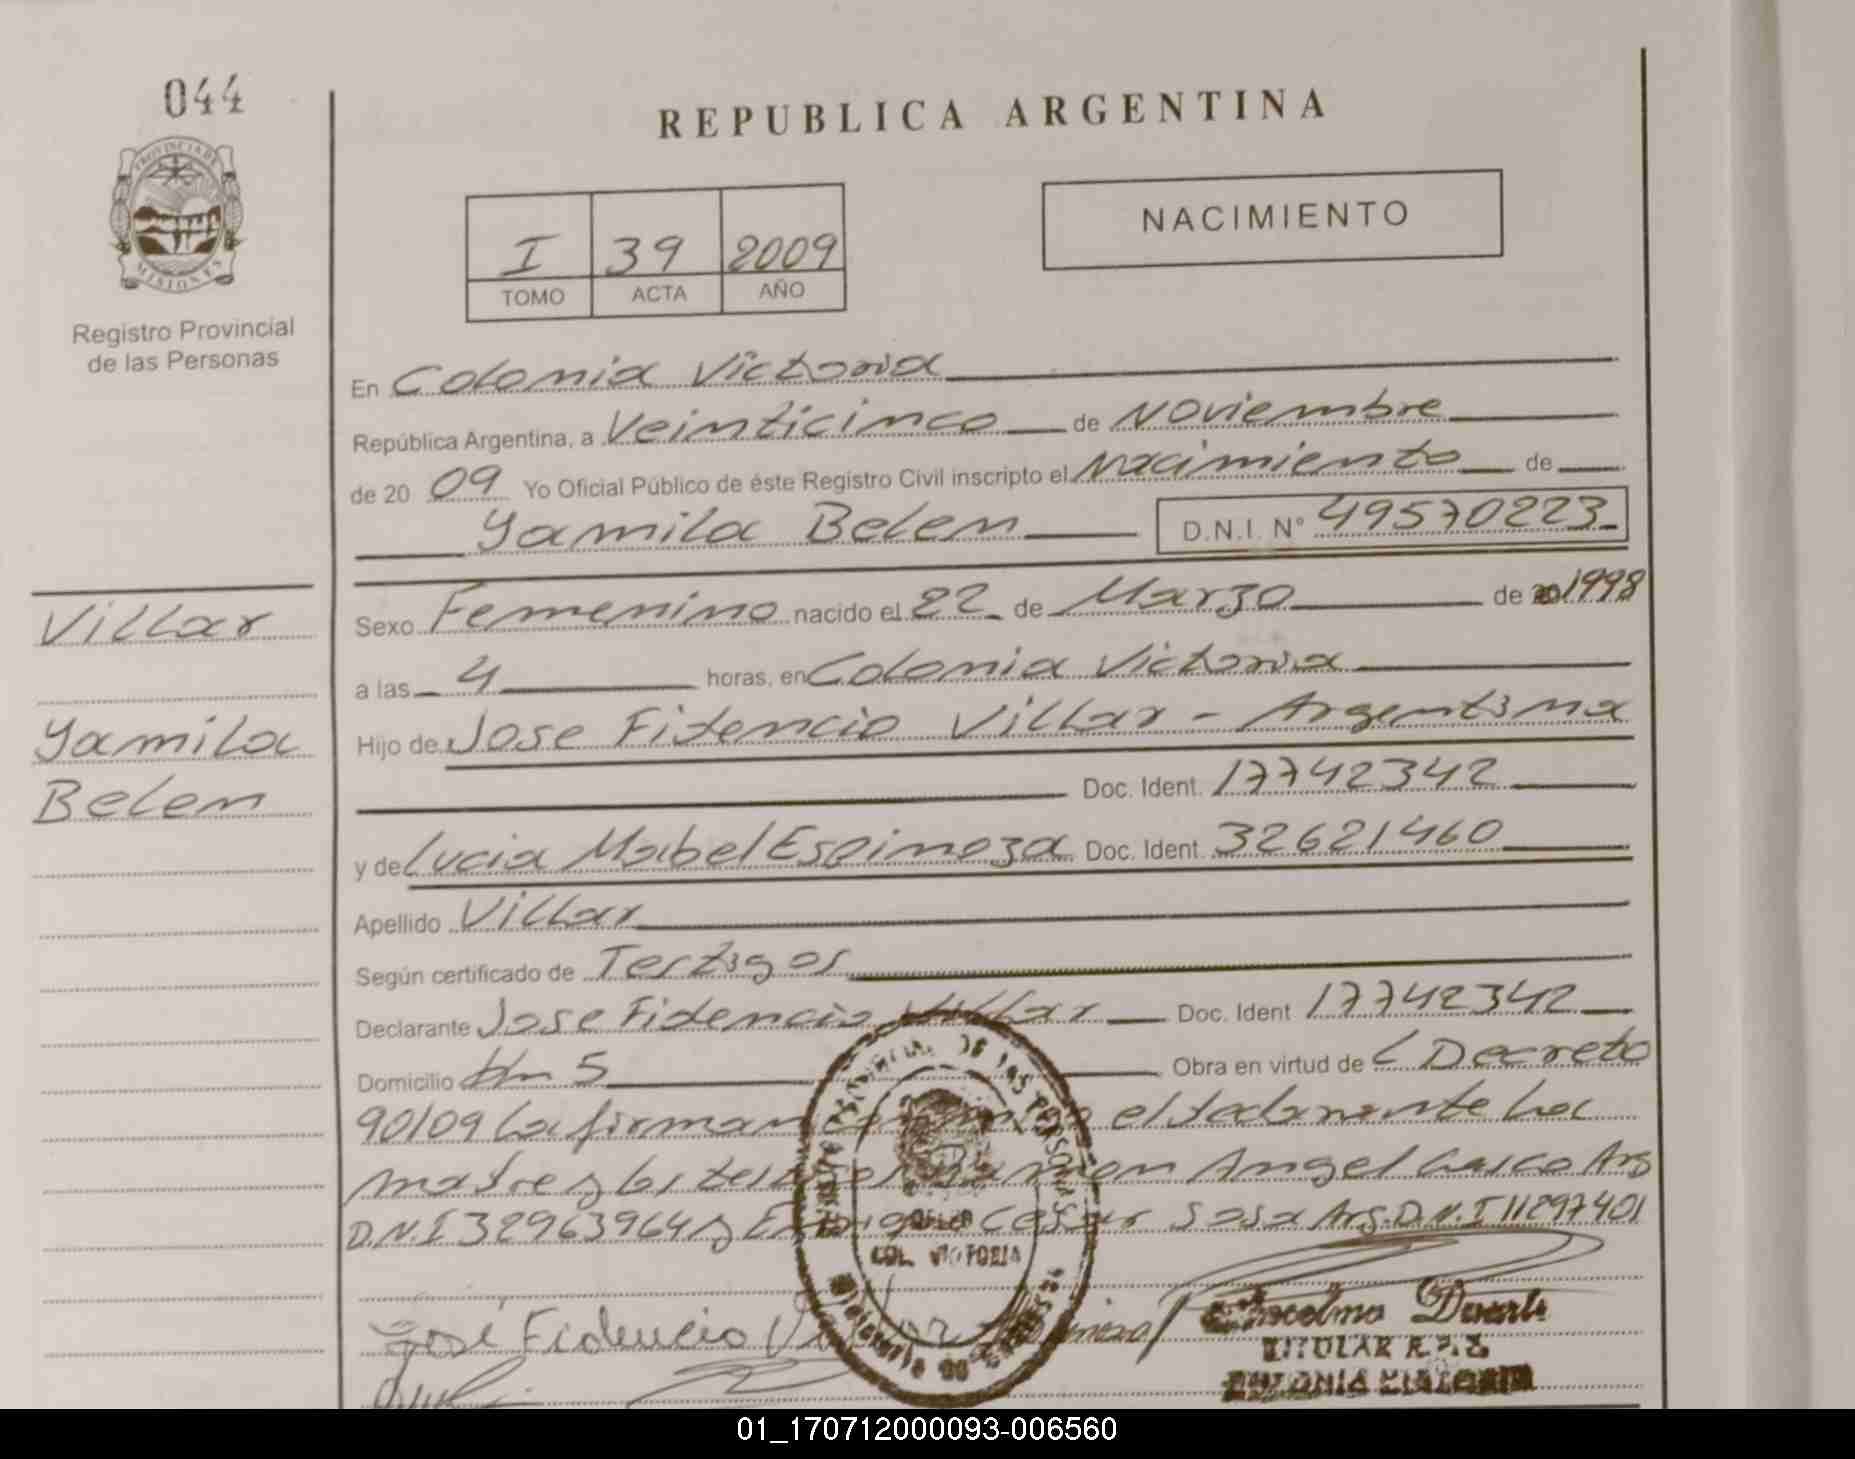 044
REPUBLICA ARGENTINA
PROVINCIA DE
MISIONES
Registro Provincial
de las Personas
I 39 2009
TOMO ACTA AÑO
NACIMIENTO
En Colonia Victoria
República Argentina, a Veinticinco de Noviembre
de 20 09 Yo Oficial Público de éste Registro Civil inscripto el Nacimiento de
Yamila Belen D.N.I. N° 49570223
Villar
Yamila
Belen
Sexo Femenino nacido el 22 de Marzo de 1998
a las 4 horas, en Colonia Victoria
Hijo de Jose Fidencio Villar - Argentina
Doc. Ident. 17742342
y de Lucia Mabel Espinoza Doc. Ident. 32621460
Apellido Villar
Según certificado de Testigos
Declarante Jose Fidencio Villar Doc. Ident 17742342
Domicilio Km 5 Obra en virtud de Decreto
90/09 La firman el declarante La
madre y los testigos Ramon Angel Arg
D.N.I 32963964 y Enrique Cesar Sosa Arg. D.N.I 11297401
COL. VICTORIA
José Fidencio Villar
Anselmo Duarte
TITULAR R.P.